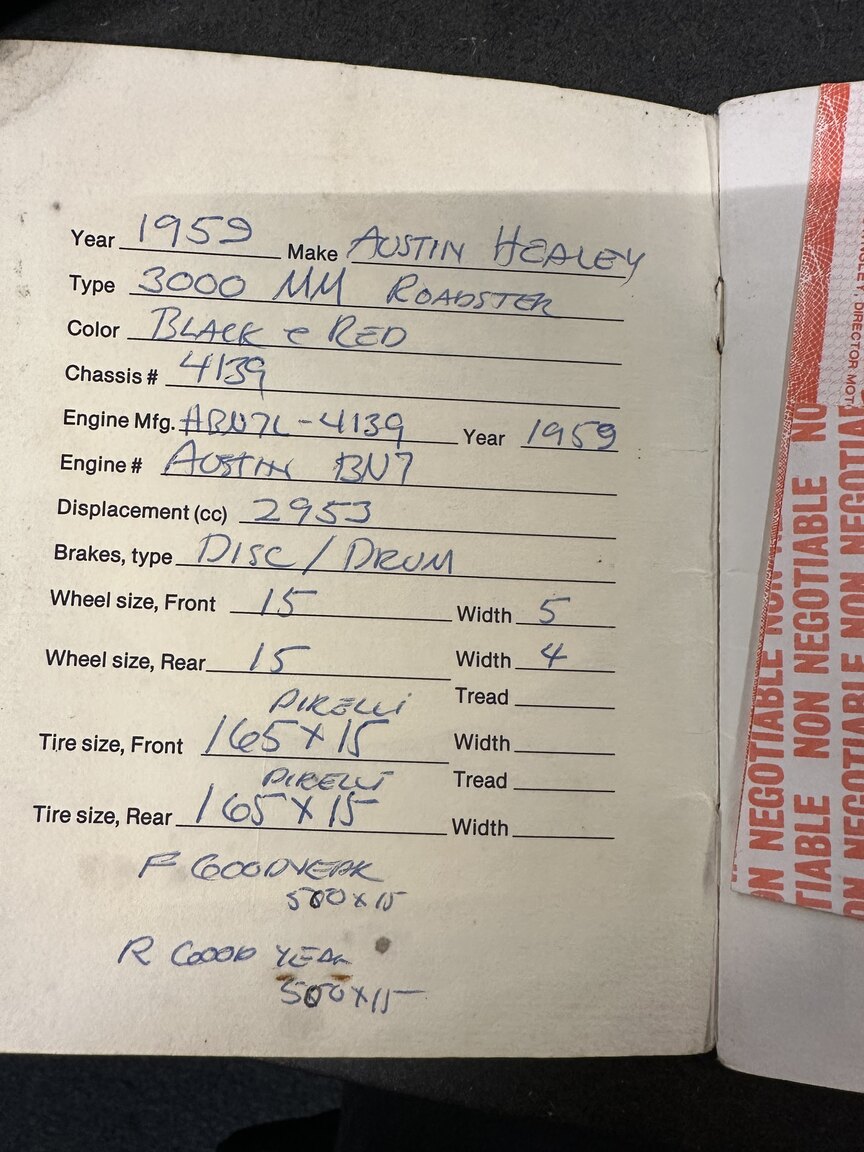 Year 1959 Make AUSTIN HEALEY
Type 3000 MM ROADSTER
Color BLACK e RED
Chassis # 4139
Engine Mfg. HBN7L-4139 Year 1959
Engine # AUSTIN BN7
Displacement (cc) 2953
Brakes, type DISC / DRUM
Wheel size, Front 15 Width 5
Wheel size, Rear 15 Width 4
PIRELLI Tread
Tire size, Front 165 X 15 Width
PIRELLI Tread
Tire size, Rear 165 X 15 Width
F GOODYEAR
500 X 15
R GOOD YEAR
500 X 15
DIRECTOR MOT
NON NEGOTIABLE NO
NEGOTIABLE NON NEGOTIABLE
NON NEGOTIABLE